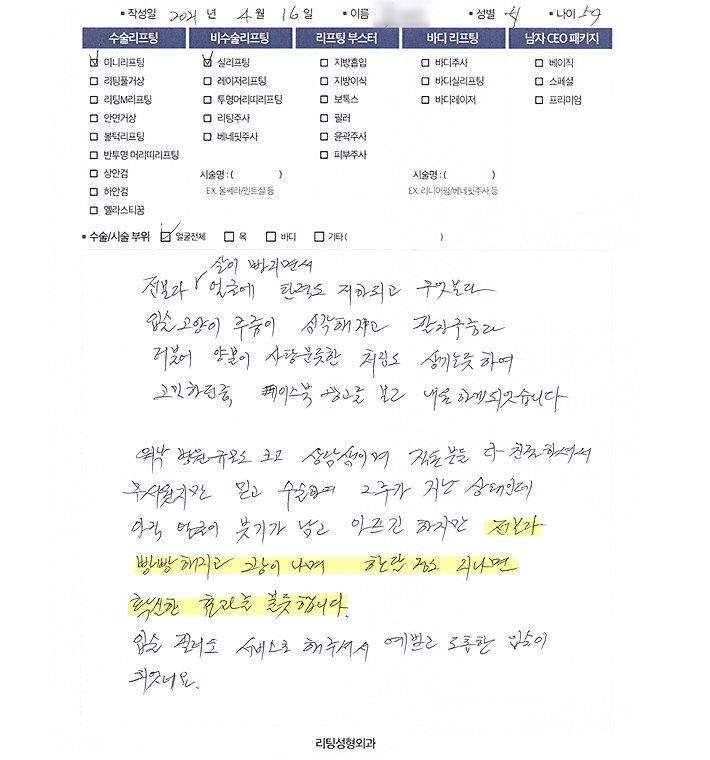 ▪ 작성일 2021 년 4 월 16 일 ▪ 이름 ▪ 성별 여 ▪ 나이 59
수술리프팅 비수술리프팅 리프팅 부스터 바디 리프팅 남자 CEO 패키지
☑ 미니리프팅 ☑ 실리프팅 □ 지방흡입 □ 바디주사 □ 베이직
□ 리팅풀거상 □ 레이저리프팅 □ 지방이식 □ 바디실리프팅 □ 스페셜
□ 리팅M리프팅 □ 투명머리띠리프팅 □ 보톡스 □ 바디레이저 □ 프리미엄
□ 안면거상 □ 리팅주사 □ 필러
□ 볼턱리프팅 □ 베네핏주사 □ 윤곽주사
□ 반투명 머리띠리프팅 □ 피부주사
□ 상안검 시술명 : ( ) 시술명 : ( )
□ 하안검 EX. 울쎄라/민트실 등 EX. 리니어펌/베네핏주사 등
□ 엘라스티꿈
▪ 수술/시술 부위 ☑ 얼굴전체 □ 목 □ 바디 □ 기타( )
살이 빠지면서
전보다 얼굴에 탄력도 저하되고 무엇보다
입술 모양이 주름이 심각해지고 팔자주름과
더불어 양볼이 사탕문듯한 처짐도 생기는듯 하여
고민하던중, 페이스북 광고를 보고 내원하게되었습니다
워낙 병원규모도 크고 상담실이며 직원분들 다 친절하셔서
무서웠지만 믿고 수술하여 2주가 지난 상태인데
아직 얼굴이 붓기가 남고 아프긴 하지만 전보다
빵빵해지고 광이 나며 한달 정도 지나면
확실한 효과를 볼듯합니다.
입술 필러도 서비스로 해주셔서 예쁘고 도톰한 입술이
되었네요.
리팅성형외과